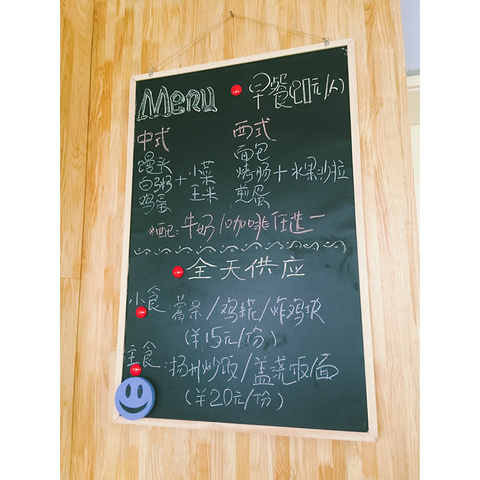 Menu 早餐(20元/人)
中式 西式
馒头 面包
白粥 + 小菜 烤肠 + 水果沙拉
鸡蛋 玉米 煎蛋
水吧: 牛奶/咖啡任选一
全天供应
小食: 薯条/鸡米花/炸鸡块
(¥15元/份)
主食: 扬州炒饭/盖浇饭/面
(¥20元/份)